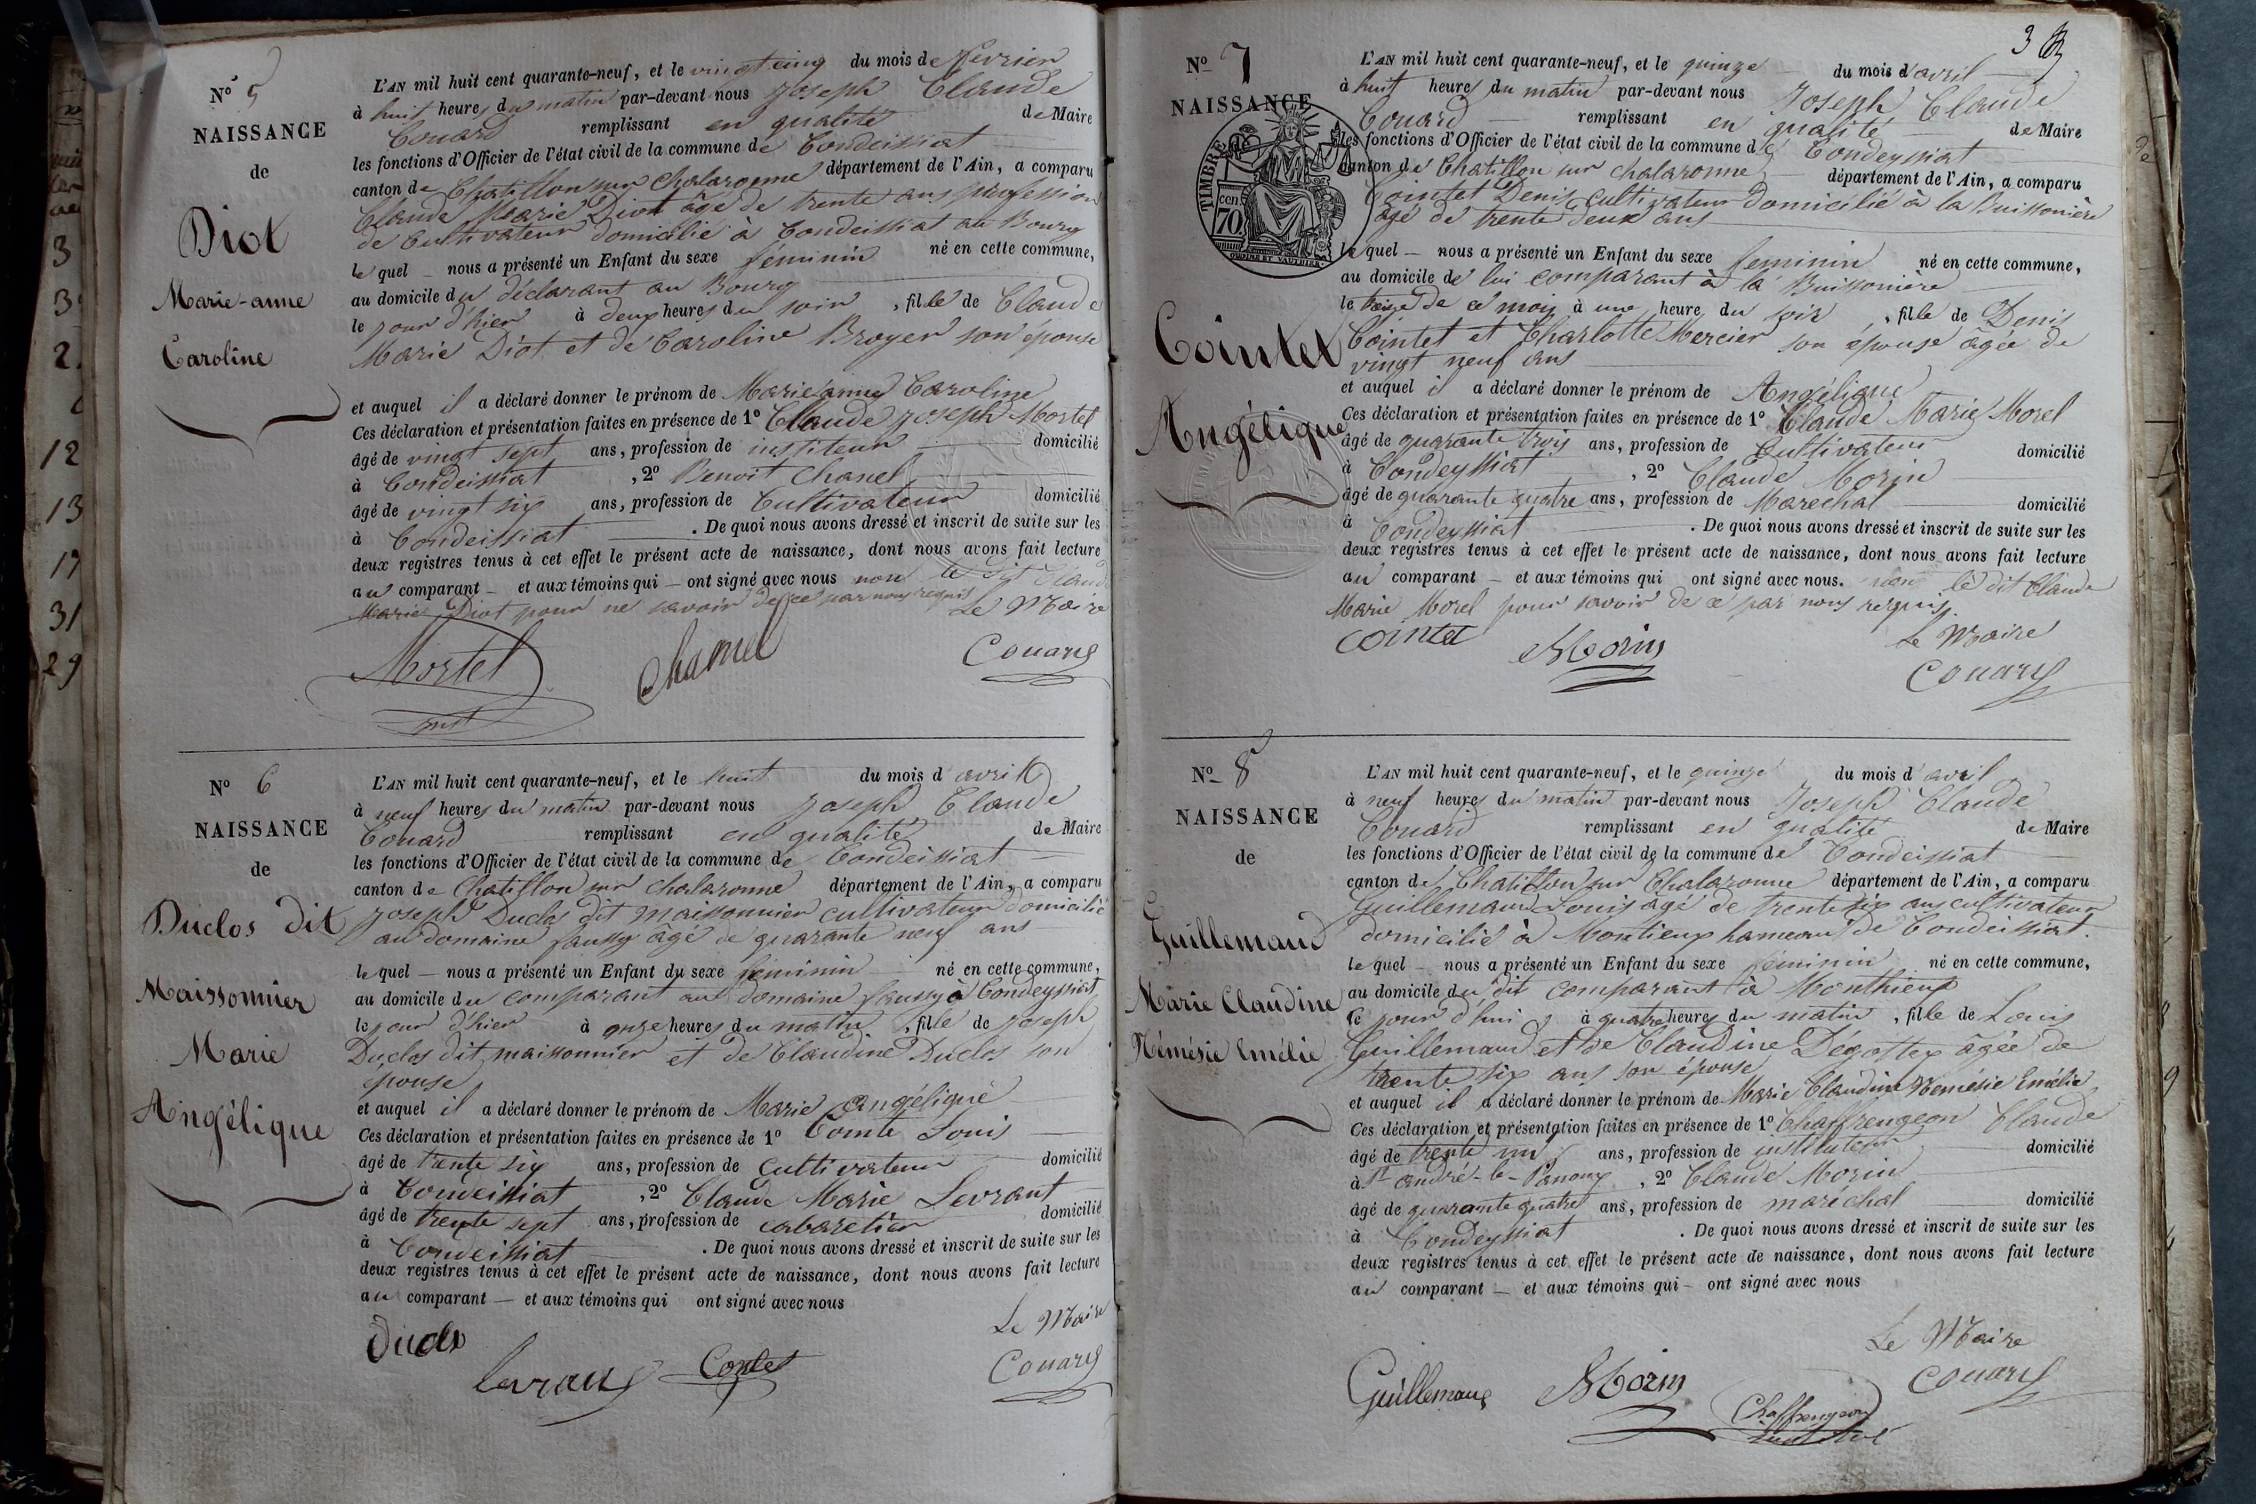 N° 5
NAISSANCE
de
Diot
Marie-anne
Caroline
L'AN mil huit cent quarante-neuf, et le vingt cinq du mois de fevrier
à huit heures du matin par-devant nous Joseph Claude
Couard remplissant en qualité de Maire
les fonctions d'Officier de l'état civil de la commune de Condeissiat
canton de Chatillon sur chalaronne département de l'Ain, a comparu
Claude Marie Diot âgé de trente ans profession
de Cultivateur domicilié à Condeissiat au Bourg
le quel nous a présenté un Enfant du sexe féminin né en cette commune,
au domicile du déclarant au Bourg
le jour d'hier à deux heures du soir , fille de Claude
Marie Diot et de Caroline Broyer son épouse
et auquel il a déclaré donner le prénom de Marie anne Caroline
Ces déclaration et présentation faites en présence de 1° Claude Joseph Mortel
âgé de vingt sept ans, profession de institeur domicilié
à Condeissiat , 2° Benoit Chanel
âgé de vingt six ans, profession de Cultivateur domicilié
à Condeissiat . De quoi nous avons dressé et inscrit de suite sur les
deux registres tenus à cet effet le présent acte de naissance, dont nous avons fait lecture
au comparant et aux témoins qui ont signé avec nous non le dit Claude
Marie Diot pour ne savoir de ce par nous requis
Le Maire
Mortel
Chanel
Couard
N° 6
NAISSANCE
de
Duclos dit
Maissonnier
Marie
Angélique
L'AN mil huit cent quarante-neuf, et le huit du mois d'avril
à neuf heures du matin par-devant nous Joseph Claude
Couard remplissant en qualité de Maire
les fonctions d'Officier de l'état civil de la commune de Condeissiat
canton de Chatillon sur chalaronne département de l'Ain, a comparu
Joseph Duclos dit maissonnier cultivateur domicilié
au domaine faussy âgé de quarante neuf ans
le quel nous a présenté un Enfant du sexe féminin né en cette commune,
au domicile du comparant au domaine faussy à Condeyssiat
le jour d'hier à onze heures du matin , fille de Joseph
Duclos dit maissonnier et de Claudine Duclos son
épouse
et auquel il a déclaré donner le prénom de Marie Angélique
Ces déclaration et présentation faites en présence de 1° Comte Louis
âgé de trente six ans, profession de cultivateur domicilié
à Condeissiat , 2° Claude Marie Levrant
âgé de trente sept ans, profession de cabaretier domicilié
à Condeissiat . De quoi nous avons dressé et inscrit de suite sur les
deux registres tenus à cet effet le présent acte de naissance, dont nous avons fait lecture
au comparant et aux témoins qui ont signé avec nous
Le Maire
Duclos
Couard
N° 7
NAISSANCE
TIMBRE
70
Cointet
Angélique
L'AN mil huit cent quarante-neuf, et le quinze du mois d'avril
à huit heures du matin par-devant nous Joseph Claude
Couard remplissant en qualité de Maire
les fonctions d'Officier de l'état civil de la commune de Condeyssiat
canton de Chatillon sur chalaronne département de l'Ain, a comparu
Cointet Denis cultivateur domicilié à la Buissonière
âgé de trente deux ans
le quel nous a présenté un Enfant du sexe feminin né en cette commune,
au domicile de lui comparant à la Buissonière
le treize de ce mois à une heure du soir , fille de Denis
Cointet et Charlotte Mercier son épouse âgée de
vingt neuf ans
et auquel il a déclaré donner le prénom de Angélique
Ces déclaration et présentation faites en présence de 1° Claude Marie Morel
âgé de quarante trois ans, profession de Cultivateur domicilié
à Condeyssiat , 2° Claude Morin
âgé de quarante quatre ans, profession de Marechal domicilié
à Condeyssiat . De quoi nous avons dressé et inscrit de suite sur les
deux registres tenus à cet effet le présent acte de naissance, dont nous avons fait lecture
au comparant et aux témoins qui ont signé avec nous. non le dit Claude
Marie Morel pour savoir de ce par nous requis.
Le Maire
Cointet
Morin
Couard
N° 8
NAISSANCE
de
Guillemaud
Marie Claudine
Némésie Emélie
L'AN mil huit cent quarante-neuf, et le quinze du mois d'avril
à neuf heures du matin par-devant nous Joseph Claude
Couard remplissant en qualité de Maire
les fonctions d'Officier de l'état civil de la commune de Condeissiat
canton de Chatillon sur Chalaronne département de l'Ain, a comparu
Guillemaud Louis âgé de trente six ans cultivateur
domicilié à Montieux hameau de Condeissiat.
le quel nous a présenté un Enfant du sexe féminin né en cette commune,
au domicile du dit comparant à Monthieux
le jour d'hui à quatre heures du matin , fille de Louis
Guillemaud et de Claudine Dégottex âgée de
trente six ans son épouse
et auquel il a déclaré donner le prénom de Marie Claudine Némésie Emélie
Ces déclaration et présentation faites en présence de 1° Chaffrengeon Claude
âgé de trente un ans, profession de instituteur domicilié
à St andré-le-Panoux , 2° Claude Morin
âgé de quarante quatre ans, profession de maréchal domicilié
à Condeyssiat . De quoi nous avons dressé et inscrit de suite sur les
deux registres tenus à cet effet le présent acte de naissance, dont nous avons fait lecture
au comparant et aux témoins qui ont signé avec nous
Le Maire
Guillemaud
Morin
Chaffrengeon
Couard